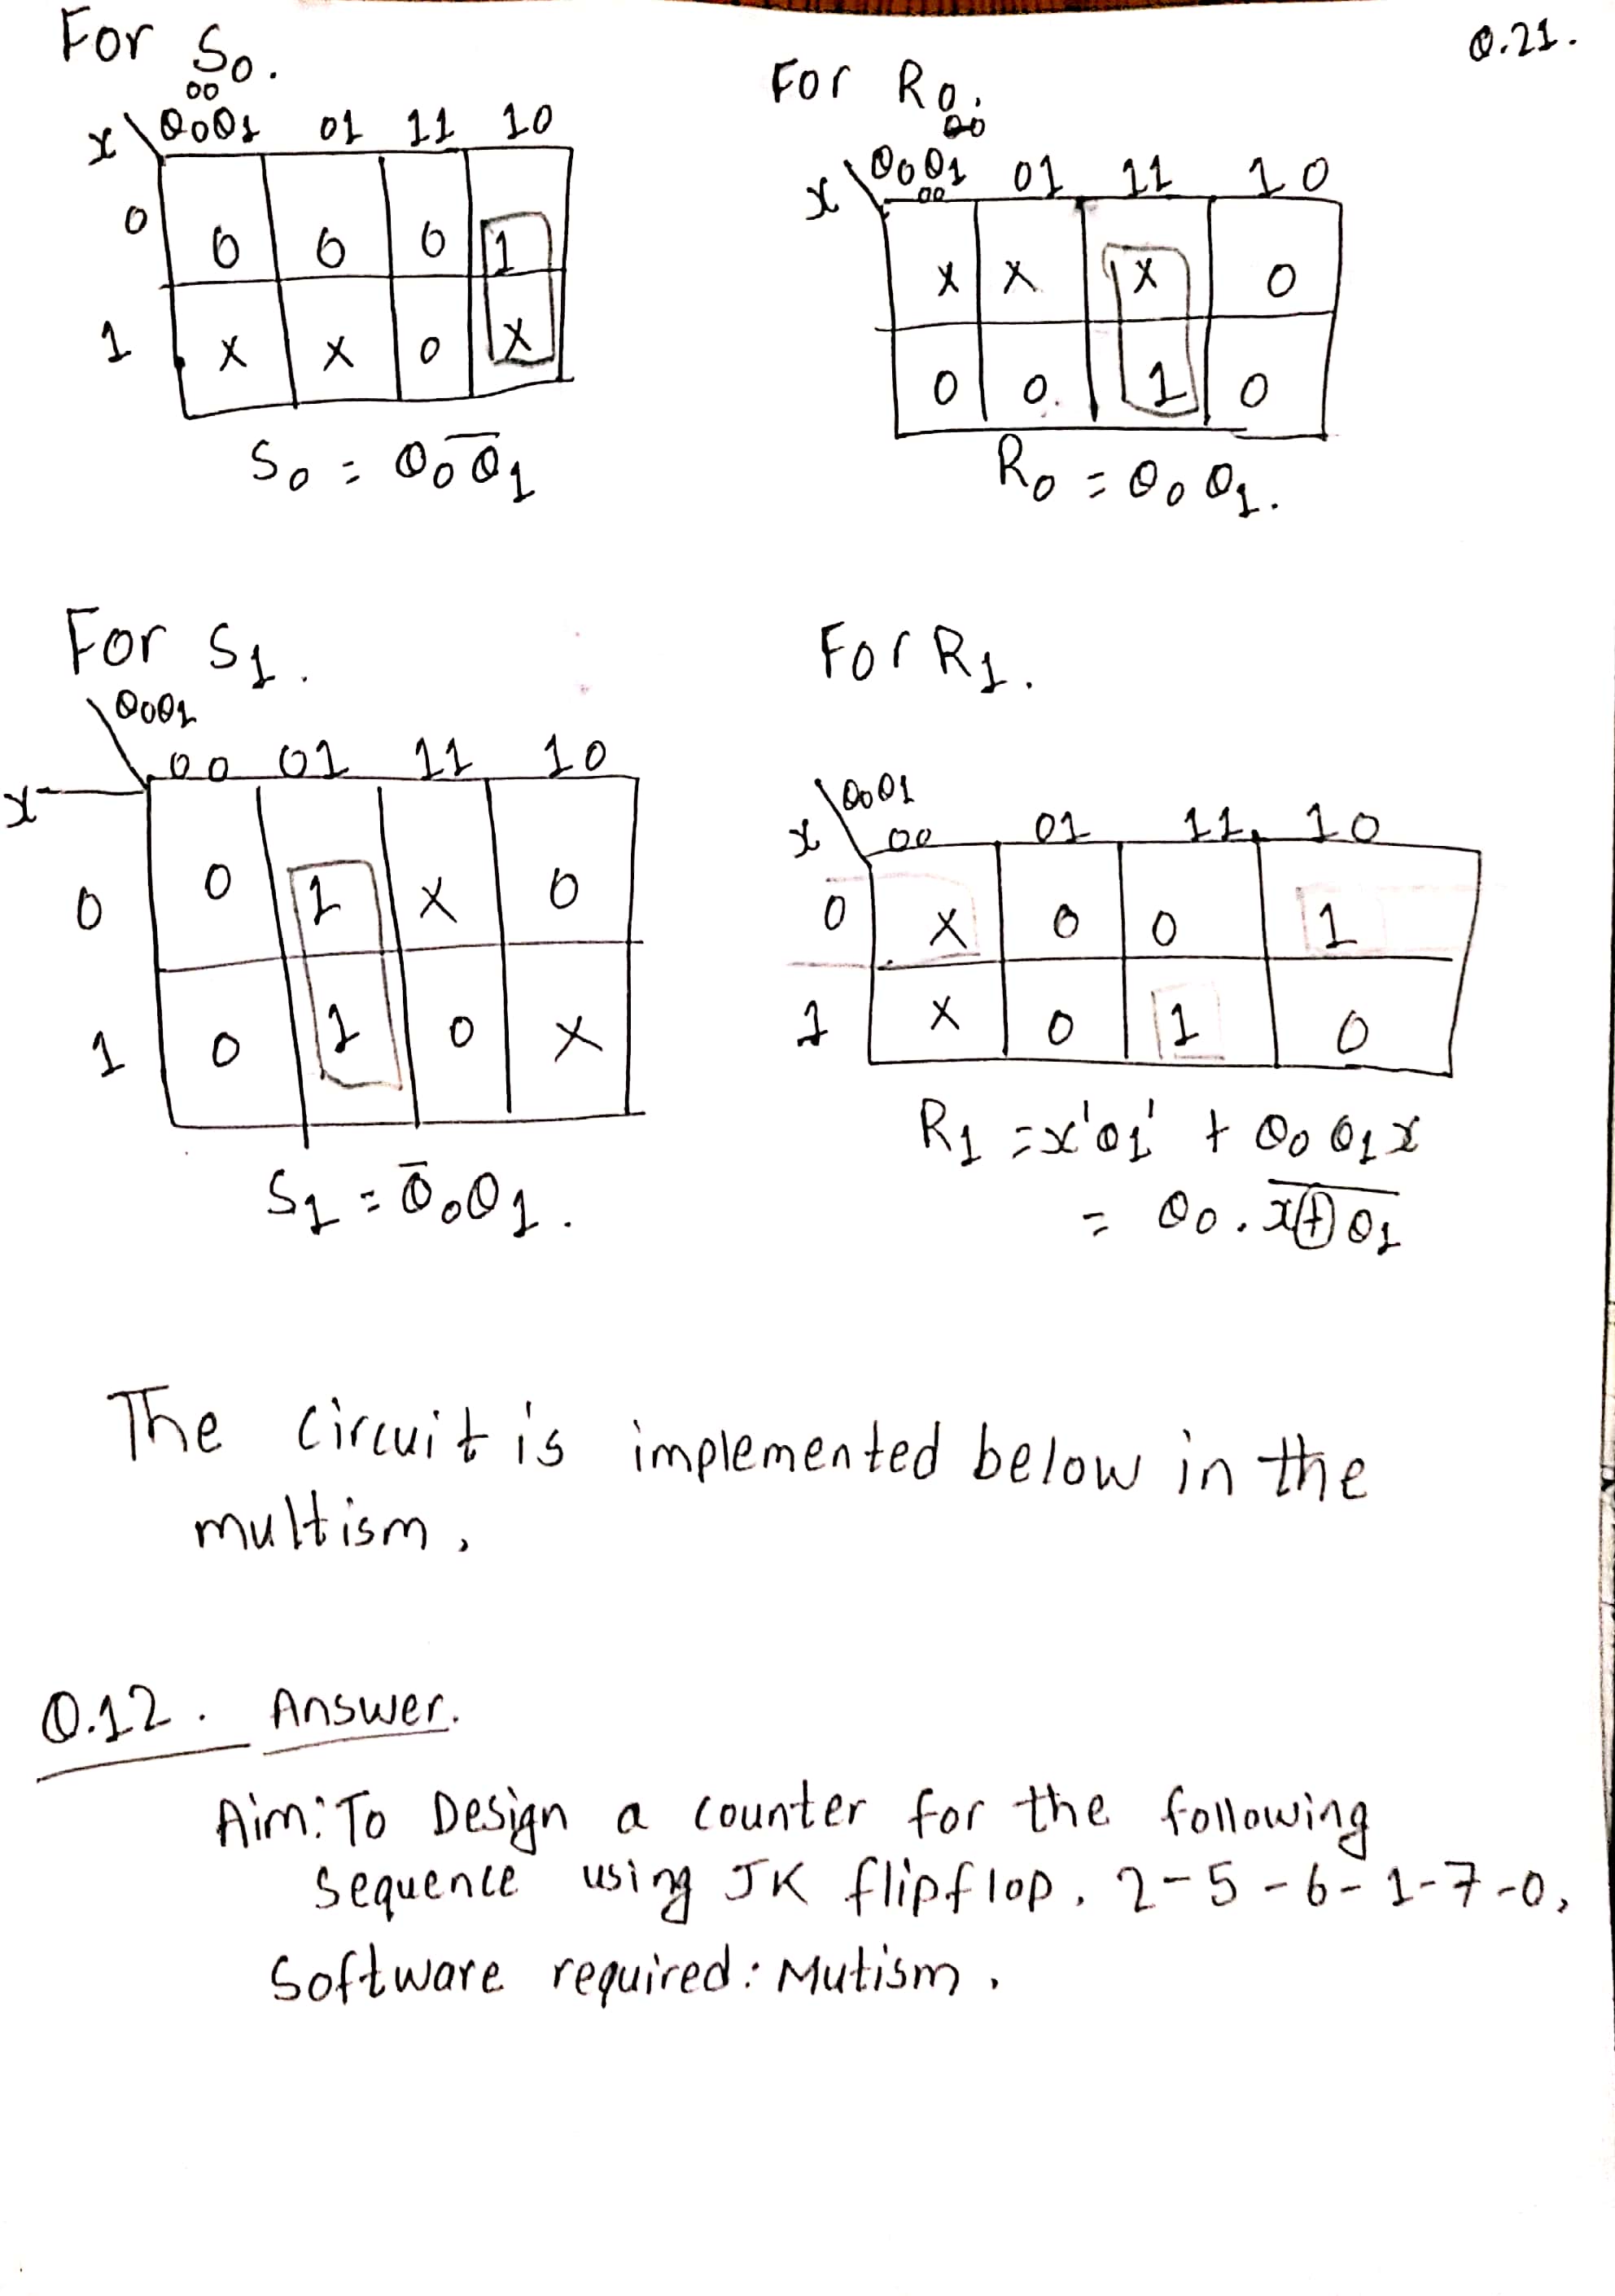 Q.21.
For S0.
00
x \ Q0Q1 01 11 10
0 0 0 0 1
1 x x 0 x
S0 = Q0 Q̅1
For R0.
00
x \ Q0Q1 01 11 10
00
x x x 0
0 0. 1 0
R0 = Q0 Q1.
For S1.
Q0Q1
00 01 11 10
x
0 0 1 x 0
1 0 1 0 x
S1 = Q̅0Q1.
For R1.
Q0Q1
x 00 01 11 10
0 x 0 0 1
1 x 0 1 0
R1 = x'Q1' + Q0 Q1 x
= Q0. \overline{x⊕Q1}
The circuit is implemented below in the
multism.
Q.12. Answer.
Aim: To Design a counter for the following
sequence using JK flipflop. 2-5-6-1-7-0,
Software required: Mutism.